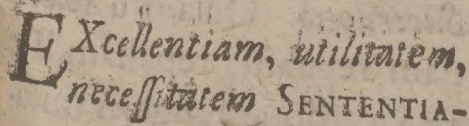 EXcellentiam, utilitatem,
neceſſitatem SENTENTIA-